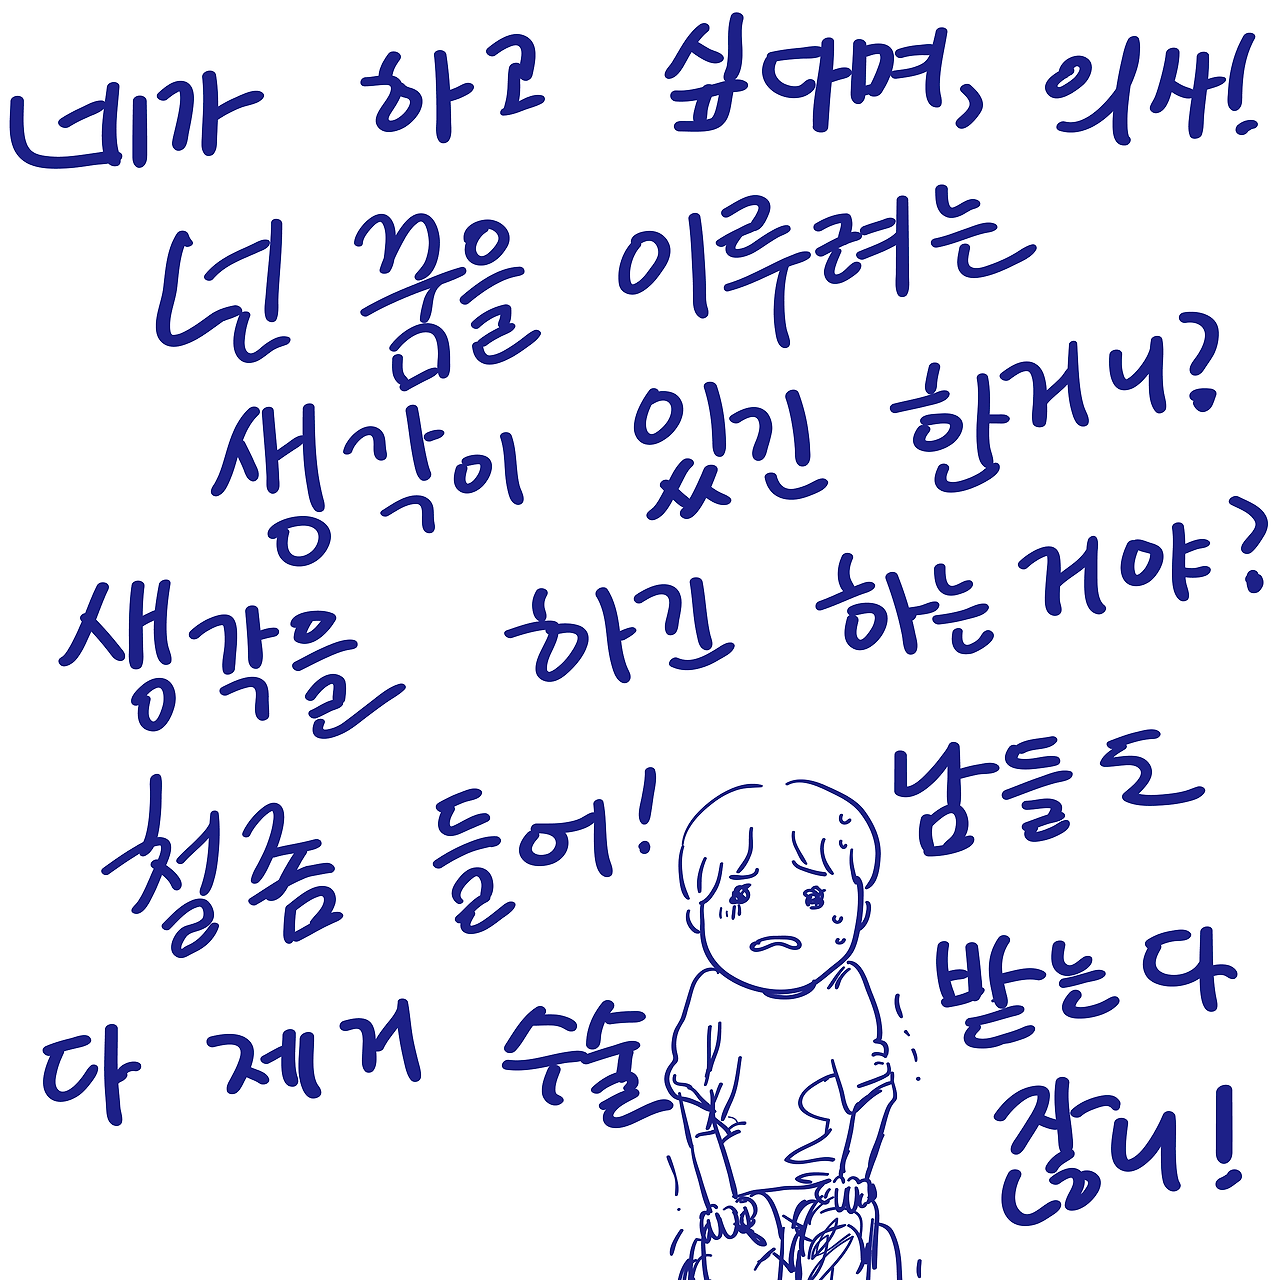 네가 하고 싶다며, 의사!
넌 꿈을 이루려는
생각이 있긴 한거니?
생각을 하긴 하는거야?
철좀 들어! 남들도
다 제거 수술 받는다
잖니!